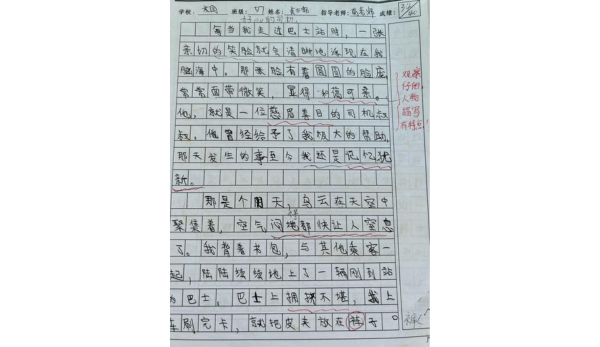 学校： 班级： 姓名： 指导老师： 成绩：
好心的司机
每当我走过巴士站时，一张
亲切的笑脸就会清晰地浮现在我
脑海中。那张脸有着圆圆的脸庞
常常面带微笑，显得和蔼可亲。
他，就是一位慈眉善目的司机叔
叔。他曾经给予了我极大的帮助。
那天发生的事至今我还是记忆犹
新。
观察
仔细，
人物
描写
有特点！
那是个阴天，乌云在天空中
聚集着，空气闷得都快让人窒息
了。我背着书包，与其他乘客一
起，陆陆续续地上了一辆刚到站
的巴士。巴士上拥挤不堪，我上
车刷完卡，就把皮夹放在裤子。